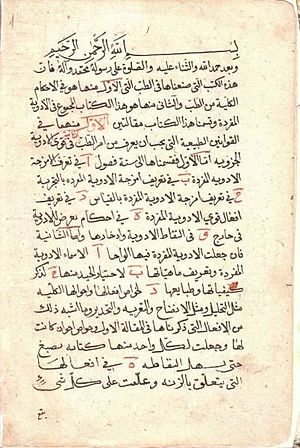 بسم الله الرحمن الرحيم
وبعد حمد الله والثناء عليه والصلوة على رسوله محمد وآله فان
هذه الكتب التي صنعناها في الطب التي الاول منها هو في الاحكام
الكلية من الطب والثاني منها هو هذا الكتاب المجموع في الادوية
المفردة وقسمنا هذا الكتاب مقالتين الاولى منهما في
القوانين الطبيعية التي يجب ان يعرف من امر الطب في قوى الادوية
الجزوية اما الاولى فقسمناها الى ستة فصول ا في تعريف امزجة
الادوية المفردة ب في تعريف امزجة الادوية المفرده بالتجربة
ج في تعريف امزجة الادوية المفردة بالقياس د في تعريف
افعال قوى الادوية المفردة ه في احكام يعرض للادوية
في خارج و في التقاط الادوية وادخارها واما الثانية
فان جعلت الادوية المفردة فيها الواحا ا الاسماء الادوية
المفردة وتعريف ماهياتها ب لاختيار الجيد منها ج لذكر
كيفياتها وطبايعها د لخواص افعالها واحوالها الكلية
مثل التحليل ومثل الانضاج والتغرية والتخدير وما اشبه ذلك
من الافعال التي ذكرناها في المقالة الاولى وخواص اخرى ان كانت
لها وجعلت لكل واحد منها كتابه بصبغ
حتى يسهل التقاطه ه في افعالها
التي يتعلق بالزينه وعلمت على كل شى